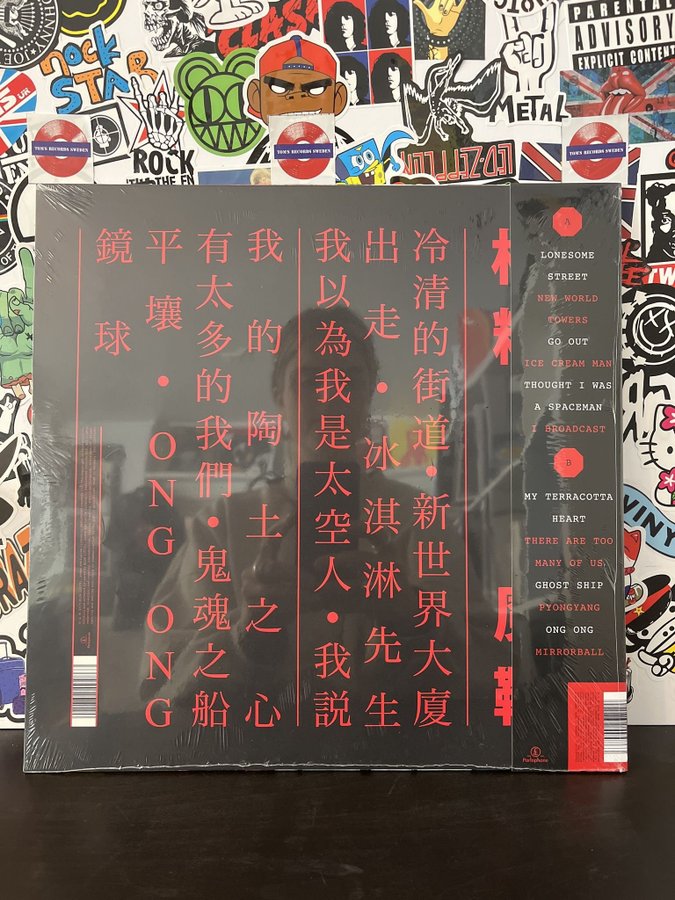 ROCK
STAR
PARENTAL
ADVISORY
EXPLICIT CONTENT
METAL
ROCK
LED-ZEPPELIN
TOM'S RECORDS SWEDEN
TOM'S RECORDS SWEDEN
TOM'S RECORDS SWEDEN
冷清的街道・新世界大廈
出走・冰淇淋先生
我以為我是太空人・我説
我的陶土之心
有太多的我們・鬼魂之船
平壤・ONG ONG
鏡球
A
LONESOME
STREET
NEW WORLD
TOWERS
GO OUT
ICE CREAM MAN
THOUGHT I WAS
A SPACEMAN
I BROADCAST
B
MY TERRACOTTA
HEART
THERE ARE TOO
MANY OF US
GHOST SHIP
PYONGYANG
ONG ONG
MIRRORBALL
Parlophone